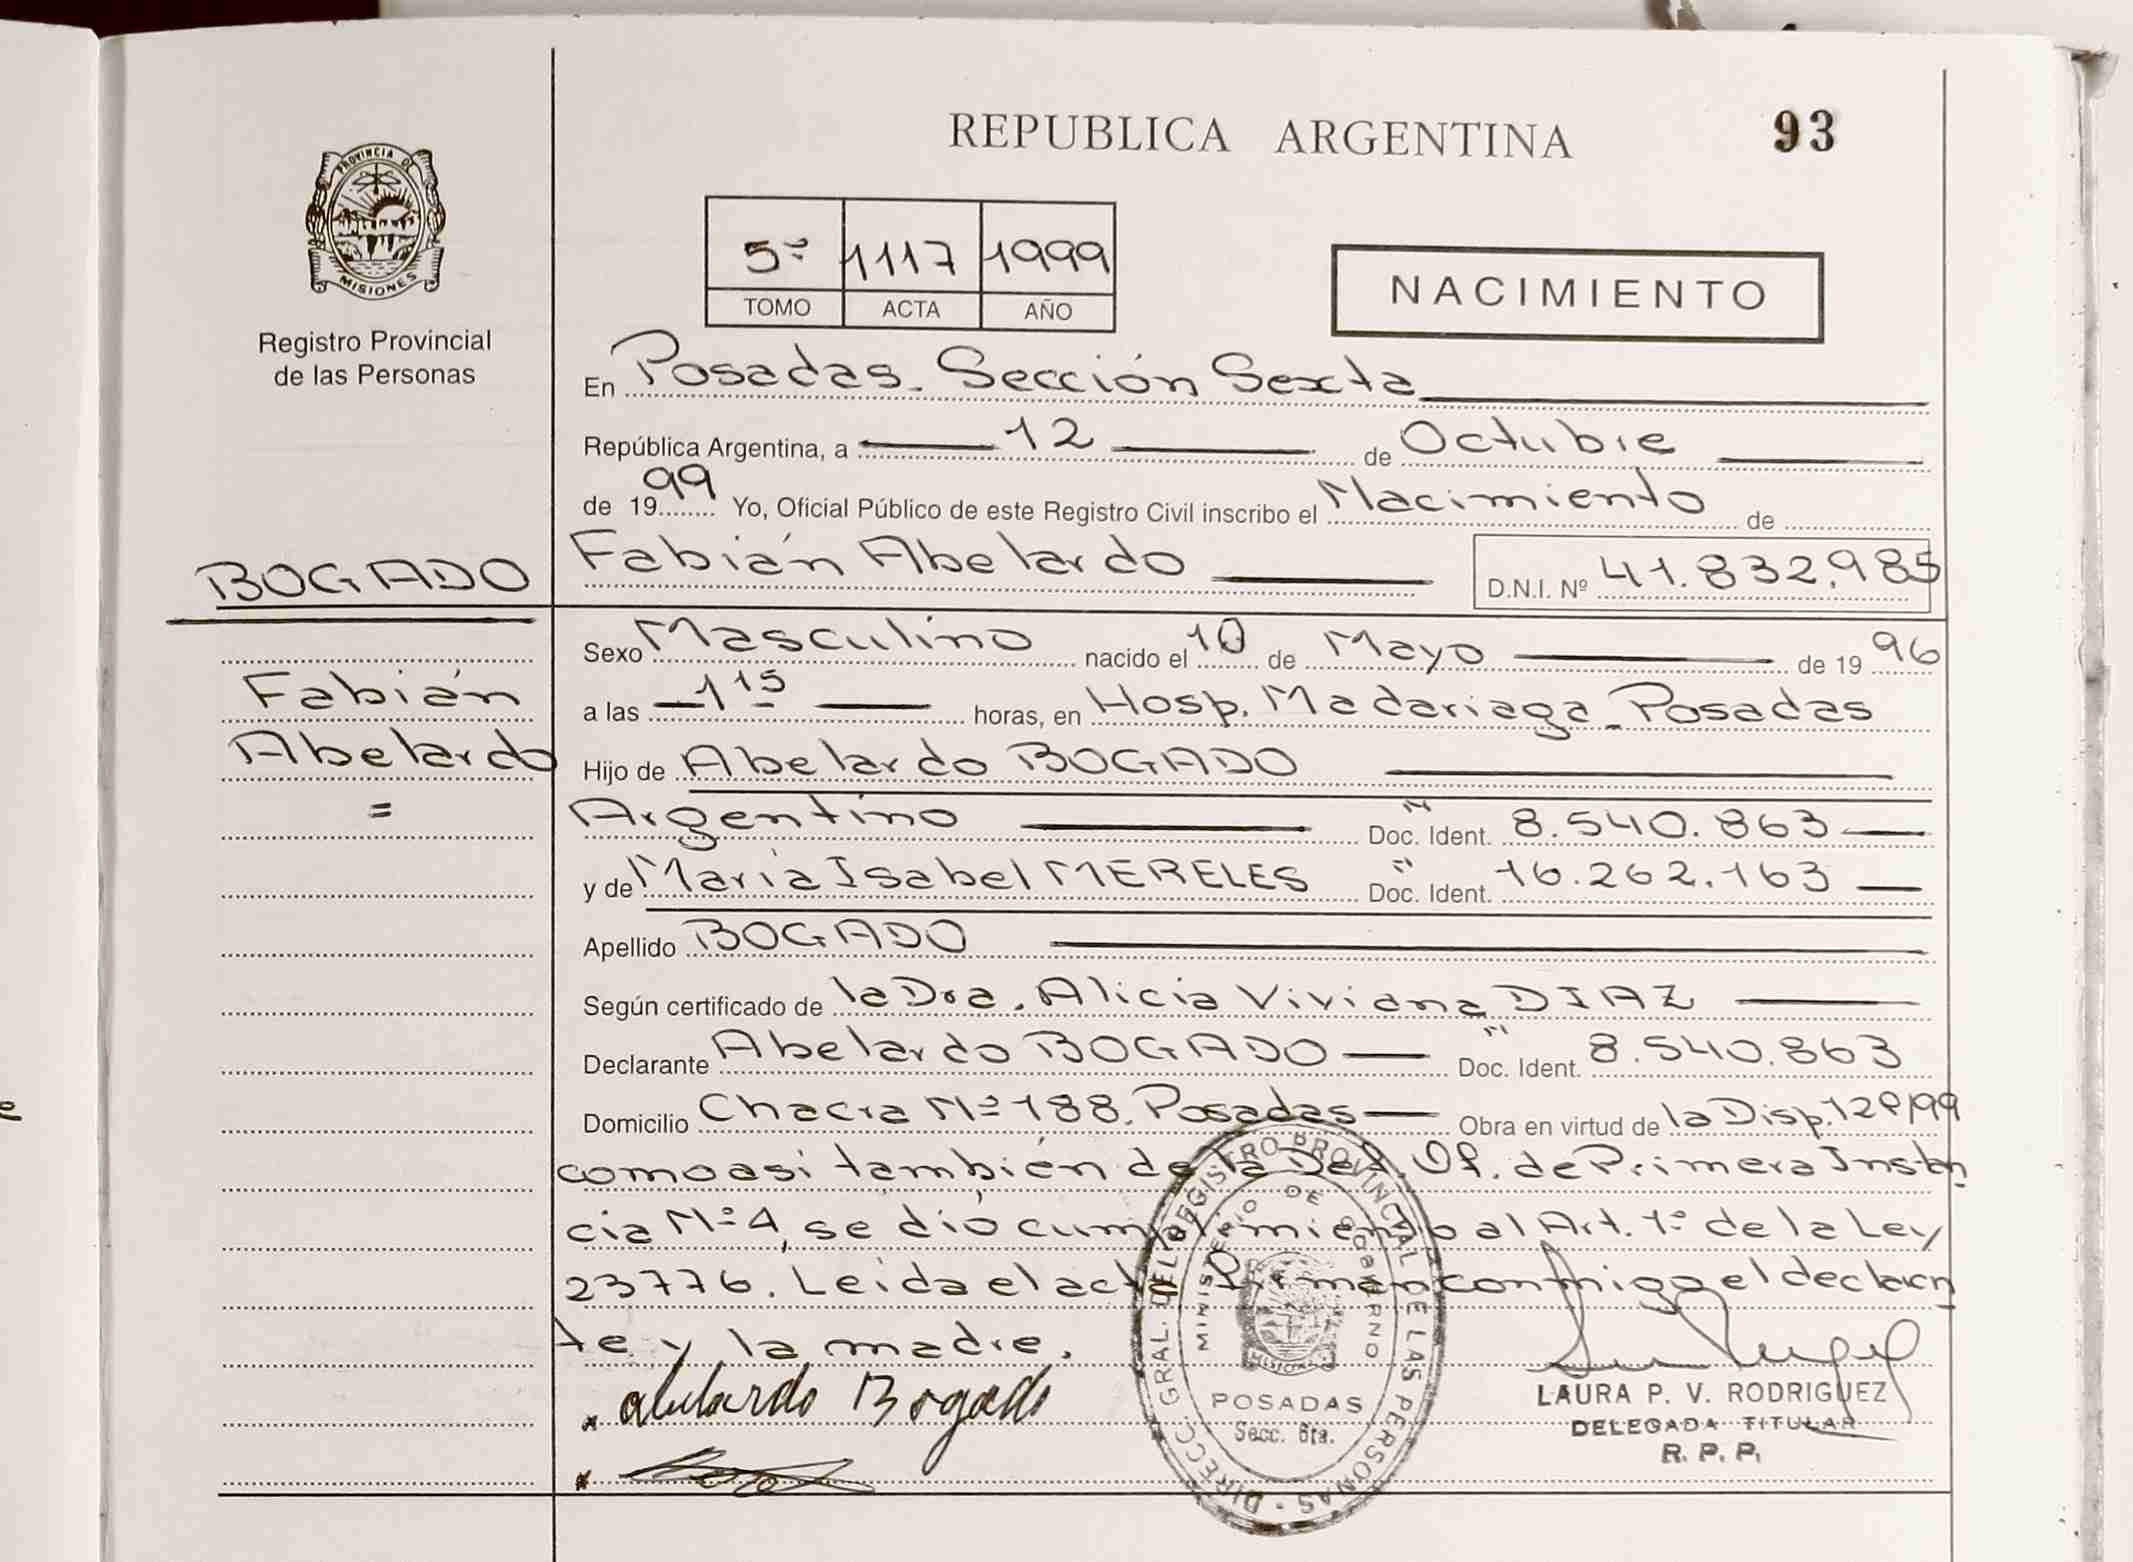 REPUBLICA ARGENTINA
93
PROVINCIA DE
MISIONES
Registro Provincial
de las Personas
5º 1117 1999
TOMO ACTA AÑO
NACIMIENTO
En Posadas. Sección Sexta
República Argentina, a 12 de Octubre
de 1999 Yo, Oficial Público de este Registro Civil inscribo el Nacimiento de
BOGADO
Fabián Abelardo
D.N.I. Nº 41.832.985
Fabián
Abelardo
=
Sexo Masculino nacido el 10 de Mayo de 1996
a las 1 15 horas, en Hosp. Madariaga - Posadas
Hijo de Abelardo BOGADO
Argentino Doc. Ident. "N" 8.540.863
y de María Isabel MERELES Doc. Ident. " 16.262.163
Apellido BOGADO
Según certificado de la Dra. Alicia Viviana DIAZ
Declarante Abelardo BOGADO Doc. Ident. 8.540.863
Domicilio Chacra Nº 188. Posadas Obra en virtud de la Disp.
como asi también de la Def. Of. de Primera Instan
cia Nº 4, se dió cumplimiento al Art. 1º de la Ley
23776. Leida el acta firman conmigo el declaran
te y la madre.
Abelardo Bogado
DIRECC. GRAL. DEL REGISTRO PROVINCIAL DE LAS PERSONAS
MINISTERIO DE GOBIERNO
MISIONES
POSADAS
Secc. 6ta.
LAURA P. V. RODRIGUEZ
DELEGADA TITULAR
R. P. P.